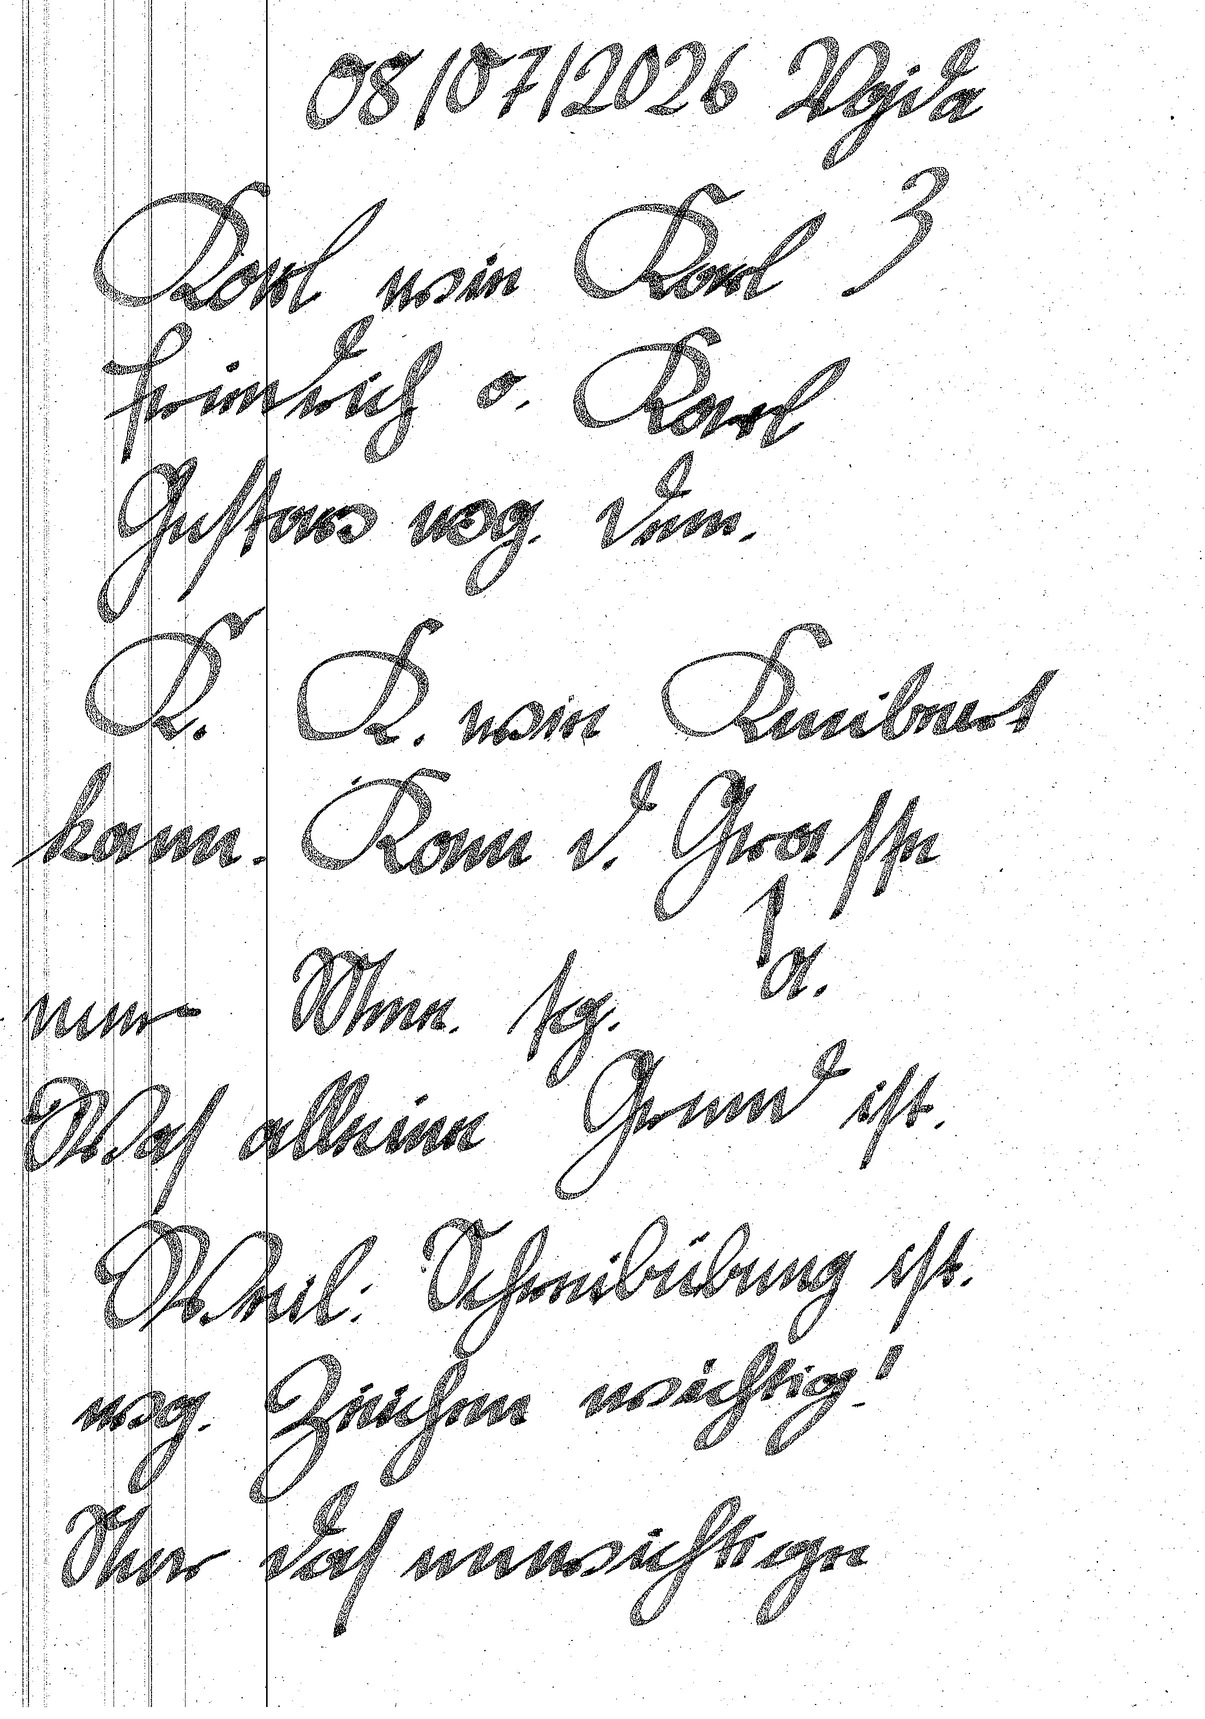 08/07/2026 Vajda
Karl wein Karl 3
heinrich o. Karl
Gustav weg. dem.
K. K. wein Kleibert
kann. Kann d. Grosse
a.
nur Nur. sg.
Was alleine Grund ist.
Weil: Schreibübung ist.
weg. Zeichen wichtig!
Nur das unwichtige